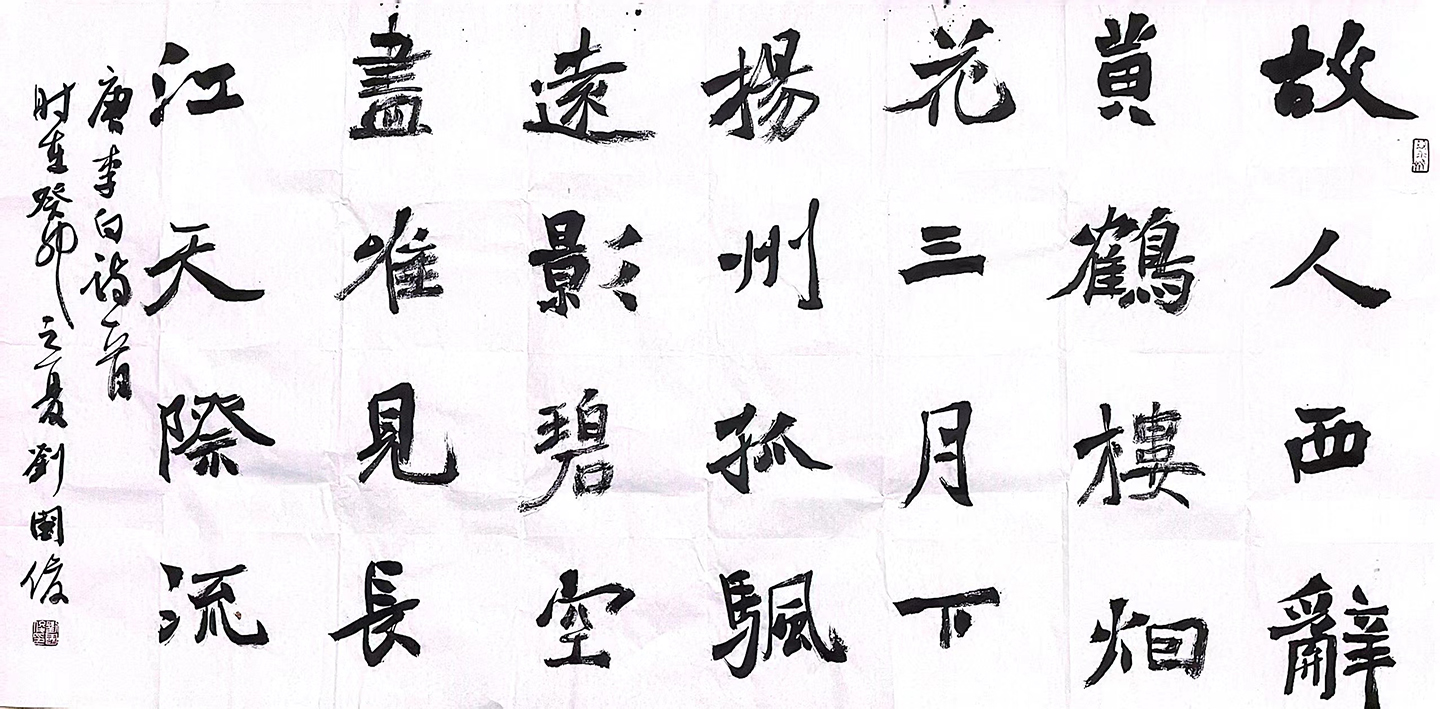 故人西辭
黄鶴樓烟
花三月下
揚州孤颿
遠影碧空
盡惟見長
江天際流
唐李白詩一首
时在癸卯之夏劉國俊